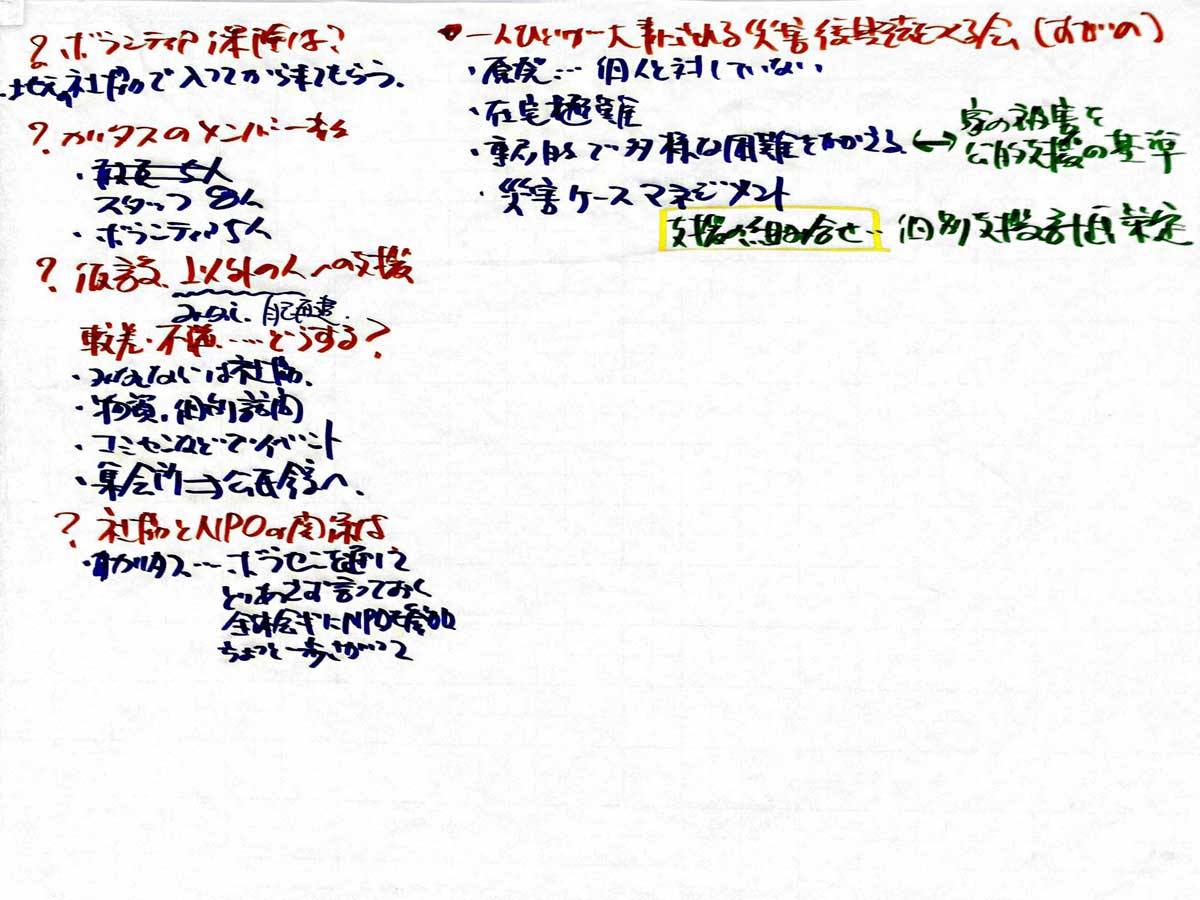 ? ボランティア保険は?
地元の社協で入ってから来てもらう.
? カリタスのメンバー数
・ 5人
スタッフ 8人
・ボランティア5人
? 仮設、以外の人への支援
みなし、自己再建.
較差・不満、…どうする?
・みなしないは社協、
・物資、個別訪問
・コミセンなどでイベント
・集会所⇒公民館へ.
? 社協とNPOの関係は
・カリタス…ボラセンを通じて
とりあえず言っておく
全体会ギにNPOも参加
ちょっと一歩さがって
・一人ひとりが大事にされる災害復興法をつくる会 (すがの)
・原発… 個人と対していない
・在宅避難
・重層的で多様な困難をかかえる ↔ 家の被害を
公的支援の基準
・災害ケースマネジメント
支援の組み合せ… 個別支援計画策定